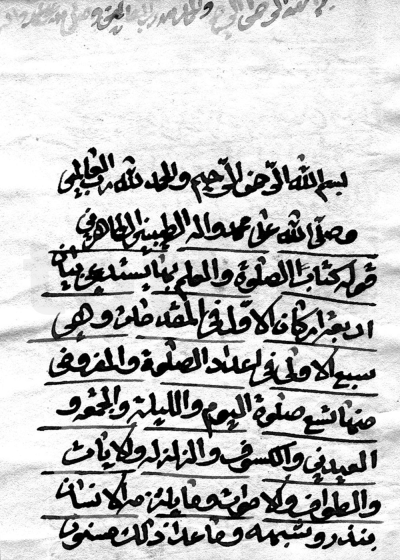 بسم الله الرحمن الرحيم والحمد لله رب العالمين
وصلى الله على محمد واله الطيبين الطاهرين
قوله كتاب الصلوة والعلم بها يستدعى بيان
اربعة اركان الاول فى المقدمات وهى
سبع الاولى فى اعداد الصلوة والمفروض
منها تسع صلوة اليوم والليلة والجمعة و
العيدين والكسوف والزلزلة والايات
والطواف والاموات وما يلتزمه الانسان
بنذر وشبهه وما عدا ذلك مسنون